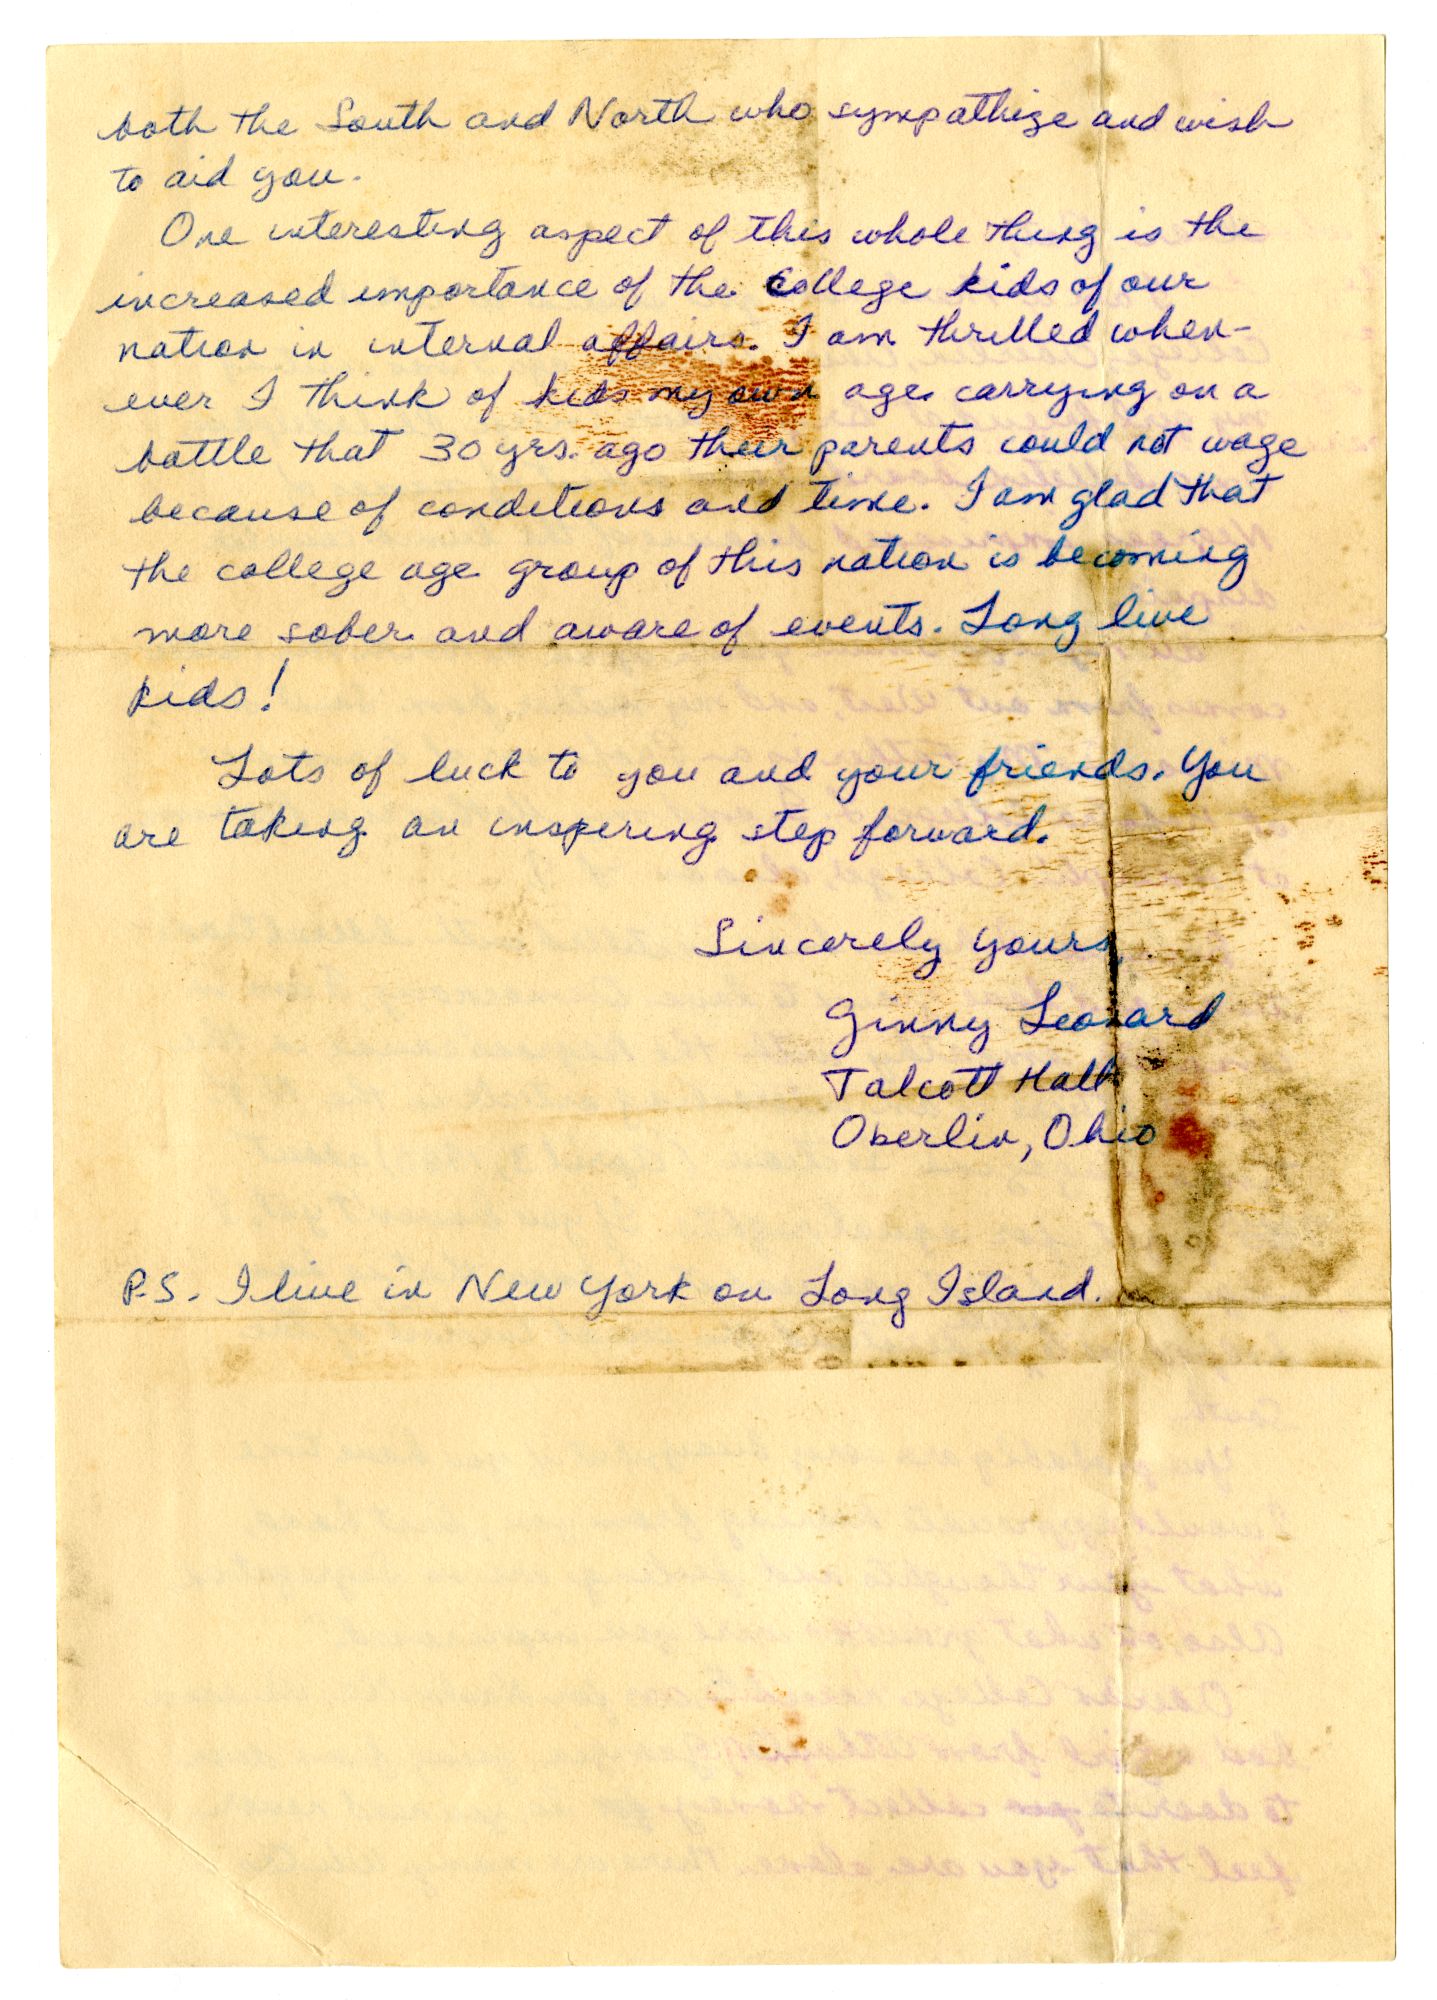 both the South and North who sympathize and wish
to aid you.
One interesting aspect of this whole thing is the
increased importance of the College kids of our
nation in internal affairs. I am thrilled when-
ever I think of kids my own age carrying on a
battle that 30 yrs. ago their parents could not wage
because of conditions and time. I am glad that
the college age group of this nation is becoming
more sober and aware of events. Long live
kids!
Lots of luck to you and your friends. You
are taking an inspiring step forward.
Sincerely yours,
Ginny Leonard
Talcott Hall
Oberlin, Ohio
P.S. I live in New York on Long Island.